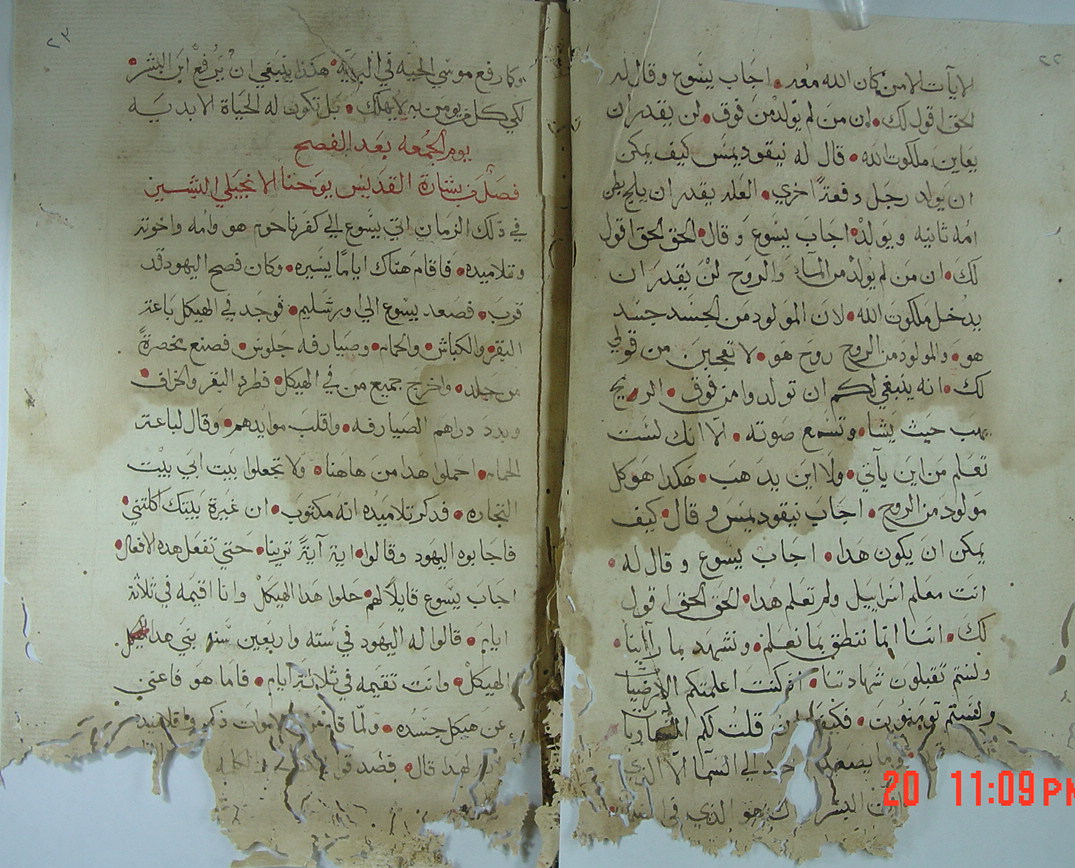 ٢٢
الايات الا من كان الله معه • اجاب يسوع وقال له
الحق اقول لك • ان من لم يولد من فوق • لن يقدر ان
يعاين ملكوت الله • قال له نيقوديمس كيف يمكن
ان يولد رجل دفعتًا اخري • العله يقدر ان يلج بطن
امه ثانيه ويولد • اجاب يسوع وقال • الحق الحق اقول
لك • ان من لم يولد من الماء والروح لن يقدر ان
يدخل ملكوت الله • لان المولود من الجسد جسد
هو • والمولود من الروح روح هو • لا تعجبن من قولي
لك • انه ينبغي لكم ان تولدوا من فوق • الريح
تهب حيث يشا • وتسمع صوته • الا انك لست
تعلم من اين يأتي • ولا اين يدهب • هكدا هو كل
مولود من الروح • اجاب نيقوديمس وقال • كيف
يمكن ان يكون هدا • اجاب يسوع وقال له •
انت معلم اسراييل ولم تعلم هدا • الحق الحق اقول
لك • اننا انما ننطق بما نعلم • ونشهد بما راينا •
ولستم تقبلون شهادتنا • ان كنت اعلمتكم الارضيات
ولستم تومنون • فكيف ان قلت لكم السماويات
وما يصعد احد الي السما الا الدي
ابن البشر هو الدي في السما
٢٣
وكما رفع موسي الحيه في البريه • هكدا ينبغي ان يرفع ابن البشر •
لكي كل من يومن به لا يهلك • بل تكون له الحياة الابديـه
يوم الجمعه بعد الفصح
فصل من بشارة القديس يوحنا الانجيلي البشير
في ذلك الزمان اتي يسوع الي كفرناحوم هو وامه واخوته
وتلاميده • فاقام هناك ايامًا يسيره • وكان فصح اليهود قد
قرب • فصعد يسوع الي اورشليم • فوجد في الهيكل باعة
البقر والكباش • والحمام • وصيارفه جلوس • فصنع مخصرةً
من جلد • واخرج جميع من في الهيكل • فطرد البقر والخراف •
وبدد دراهم الصيارفه • واقلب موايدهم • وقال لباعة
الحمام • احملوا هدا من هاهنا • ولا تجعلوا بيت ابي بيت
التجاره • فدكر تلاميده انه مكتوب • ان غيرة بيتك اكلتني •
فاجابوه اليهود وقالوا • اية آيةً ترينا • حتي تفعل هده الافعال •
اجاب يسوع قايلاً لهم • حلوا هدا الهيكل وانا اقيمه في ثلاثة
ايام • قالوا له اليهود في سته واربعين سنه بني هدا
الهيكل • وانت تقيمه في ثلاثة ايام • فاما هو فاعني
عن هيكل جسده • ولما قام من الاموات دكروا تلاميده
لهدا قال • فصدقوا